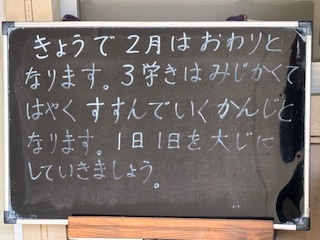 きょうで2月はおわりと
なります。3学きはみじかくて
はやくすすんでいくかんじと
なります。1日1日を大じに
していきましょう。